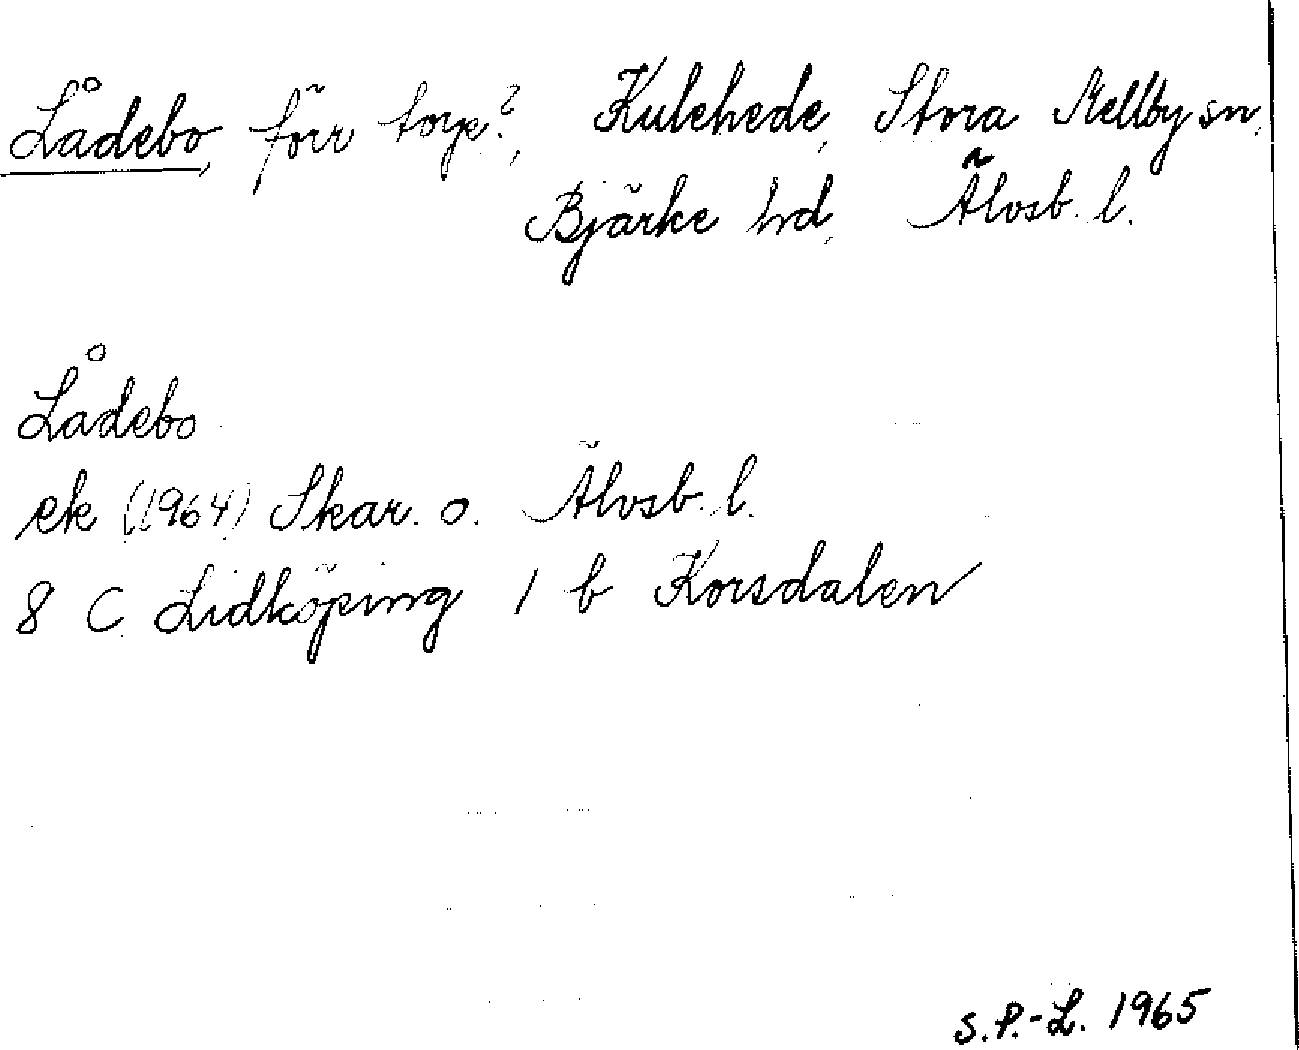 Lådebo, förr torp?, Kulehede, Stora Mellby sn,
Bjärke hd, Älvsb. l.
Lådebo
ek (1964) Skar. o. Älvsb. l.
8 C Lidköping 1 b Korsdalen
S.P.-L. 1965